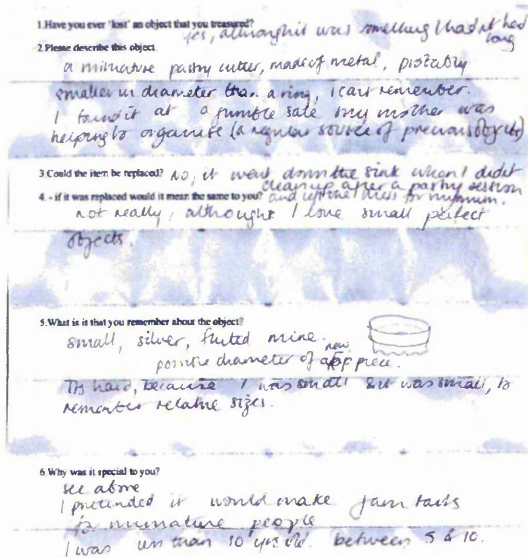 1.Have you ever 'lost' an object that you treasured?
Yes, although it was something I hadn't had long
2.Please describe this object
a miniature pastry cutter, made of metal, probably
smaller in diameter than a ring, I can't remember.
I found it at a jumble sale my mother was
helping to organise (a regular source of precious objects)
3.Could the item be replaced? No, it went down the sink when I didn't
clean up after a pastry session
and left the mess for my mum.
4. - if it was replaced would it mean the same to you?
not really, although I love small perfect
objects.
5.What is it that you remember about the object?
small, silver, fluted mine.
possible diameter of new 5p piece.
It's hard, because I was small & it was small, to
remember relative sizes.
6.Why was it special to you?
see above
I pretended it would make jam tarts
for miniature people
I was less than 10 yrs old. between 5 & 10.